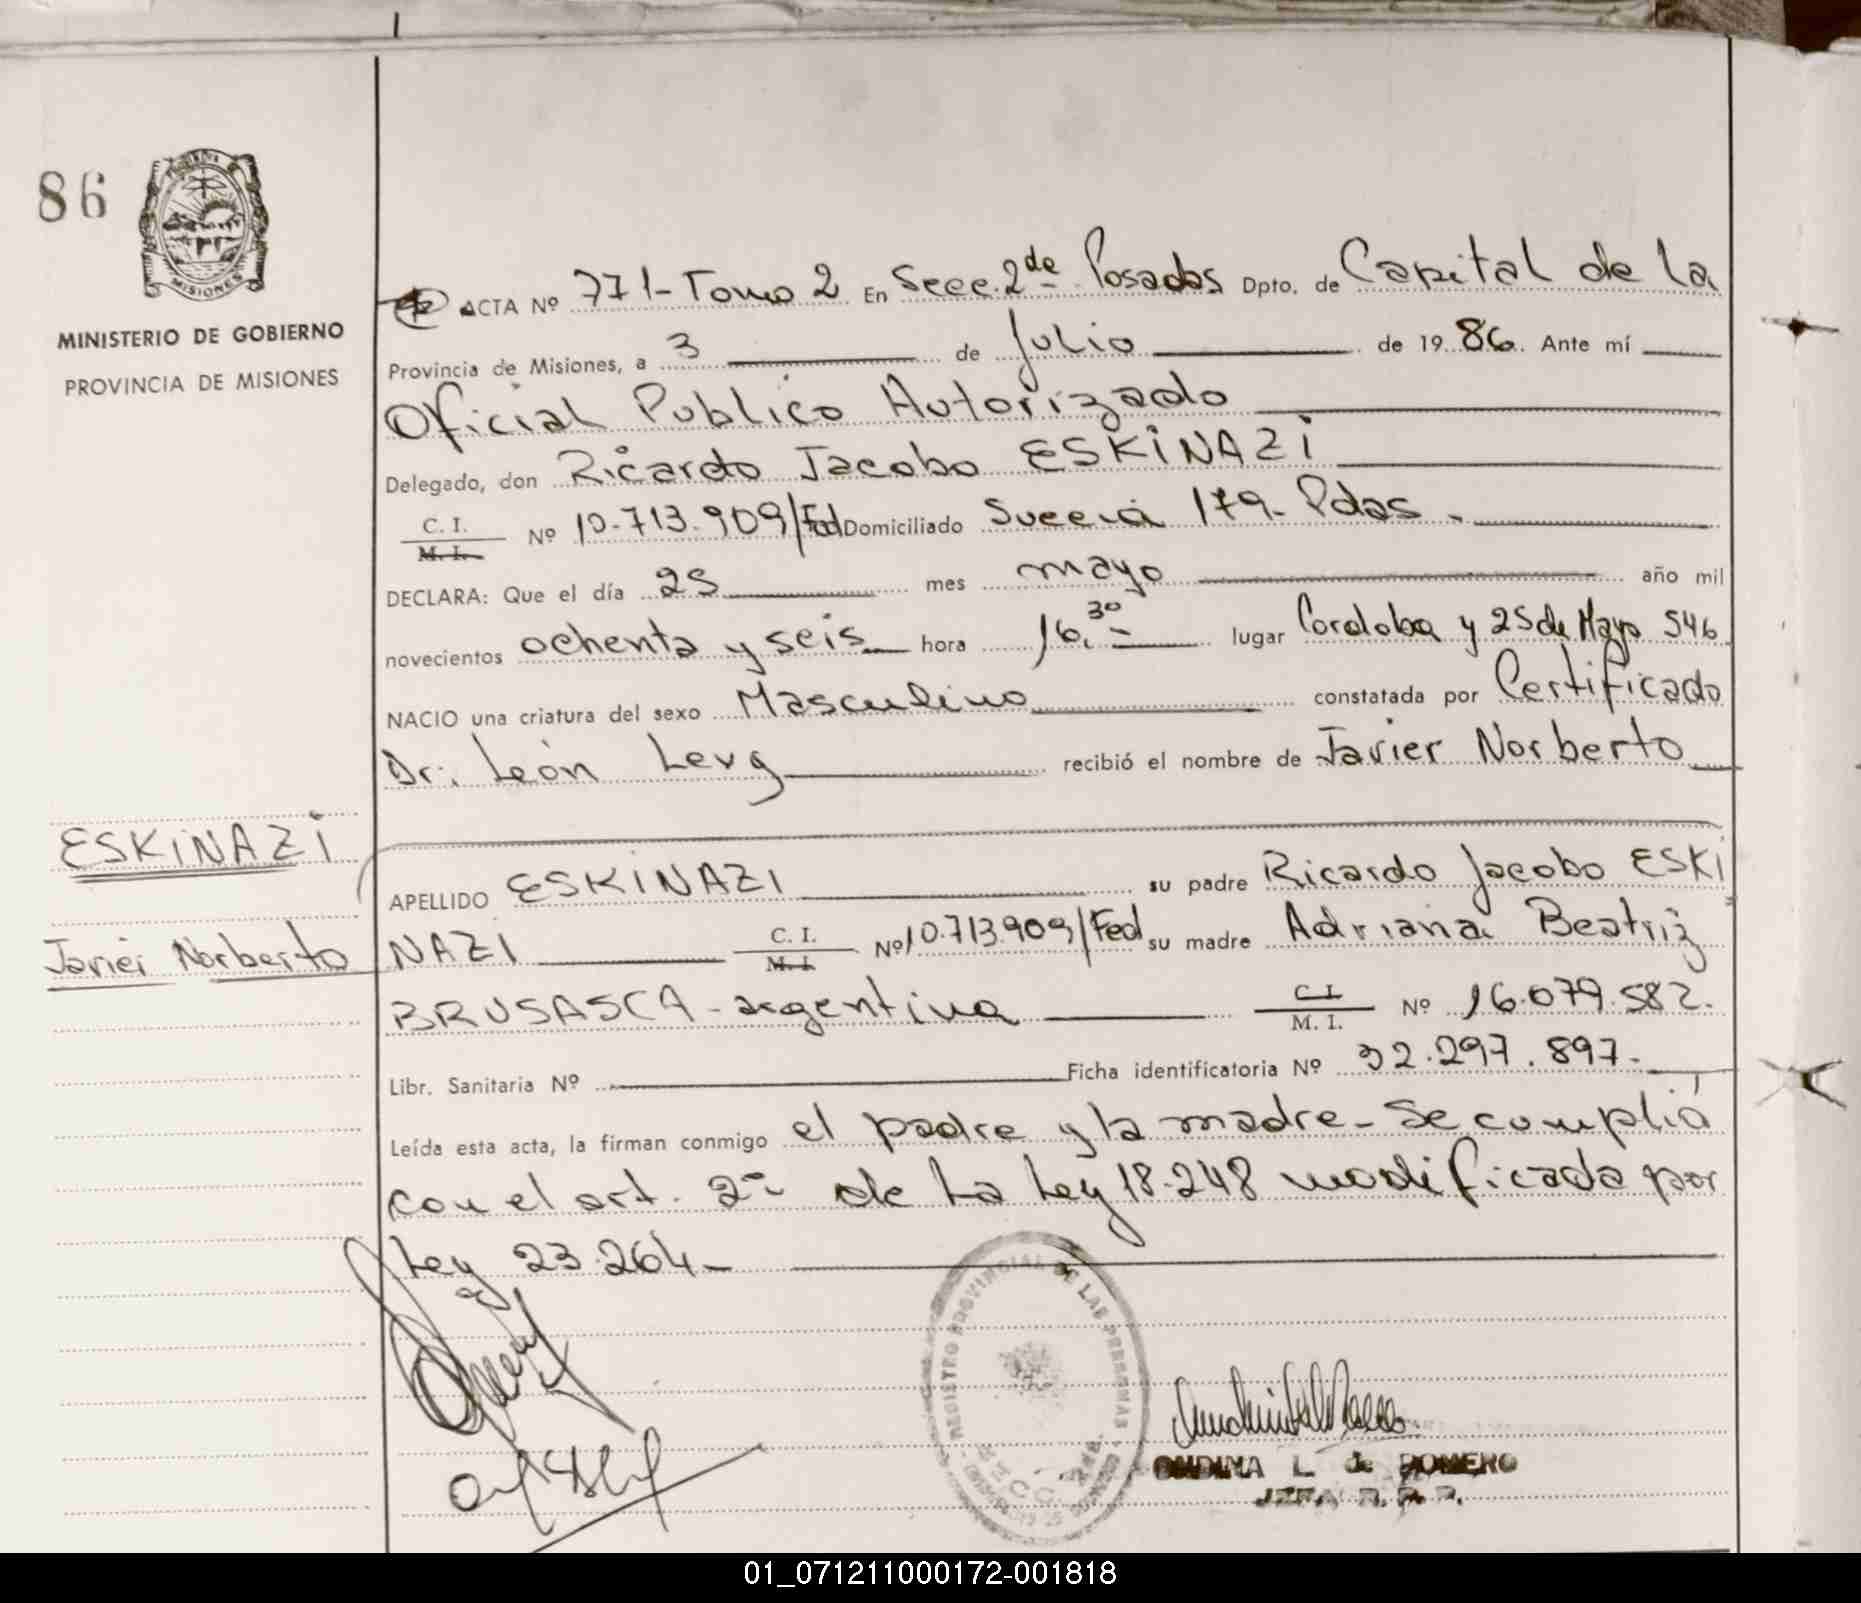 86
MISIONES
MINISTERIO DE GOBIERNO
PROVINCIA DE MISIONES
ESKINAZI
Javier Norberto
ACTA Nº 771 - Tomo 2 En Secc. 2de Posadas Dpto. de Capital de la
Provincia de Misiones, a 3 de Julio de 1986. Ante mí
Oficial Publico Autorizado
Delegado, don Ricardo Jacobo ESKINAZI
C. I.
M. I. Nº 10.713.909/Fed Domiciliado Suecia 179 - Pdas.
DECLARA: Que el día 25 mes mayo año mil
novecientos ochenta y seis hora 16.30 lugar Cordoba y 25 de Mayo 546
NACIO una criatura del sexo Masculino constatada por Certificado
Dr. León Levy recibió el nombre de Javier Norberto
APELLIDO ESKINAZI su padre Ricardo Jacobo ESKI
NAZI C. I. M. I. Nº 10.713.909/Fed su madre Adriana Beatriz
BRUSASCA - argentina C. I. M. I. Nº 16.079.582.
Libr. Sanitaria Nº Ficha identificatoria Nº 32.297.897.
Leída esta acta, la firman conmigo el padre y la madre - Se cumplió
con el art. 2º de la Ley 18.248 modificada por
Ley 23.264 -
REGISTRO PROVINCIAL DE LAS PERSONAS
SECC. 2da.
ONDINA L. J. ROMERO
JEFA R. P. P.
01_071211000172-001818